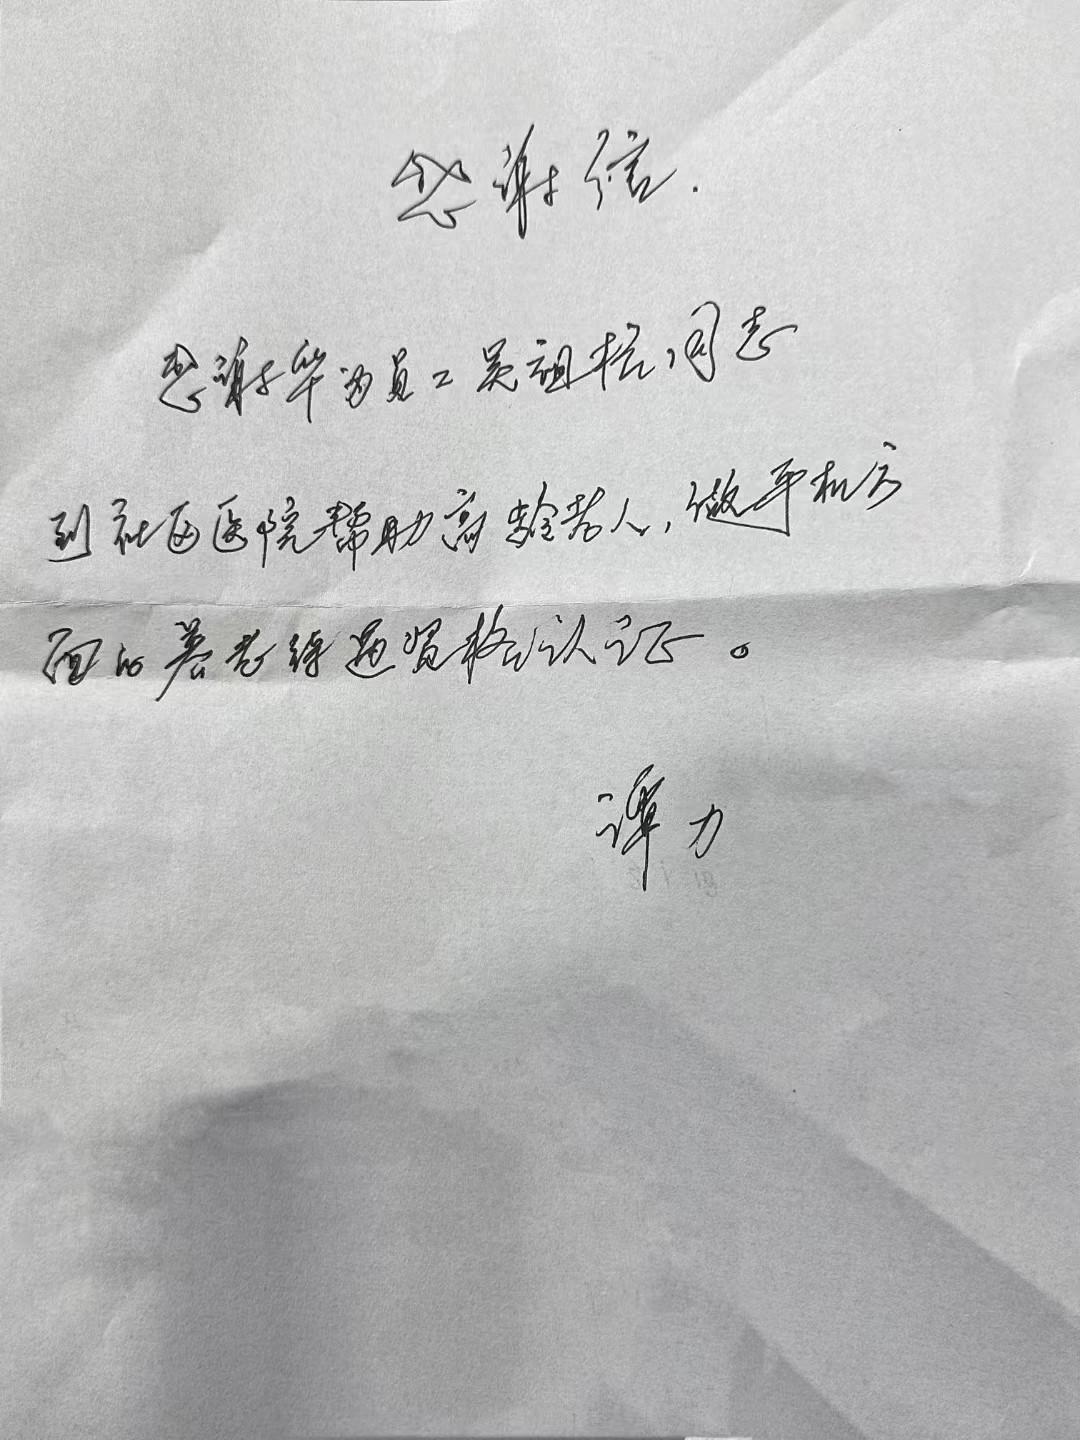 感谢信.
感谢华为员工吴祖栋同志
到社区医院帮助高龄老人,做手机方
面的养老待遇资格认证。
谭力